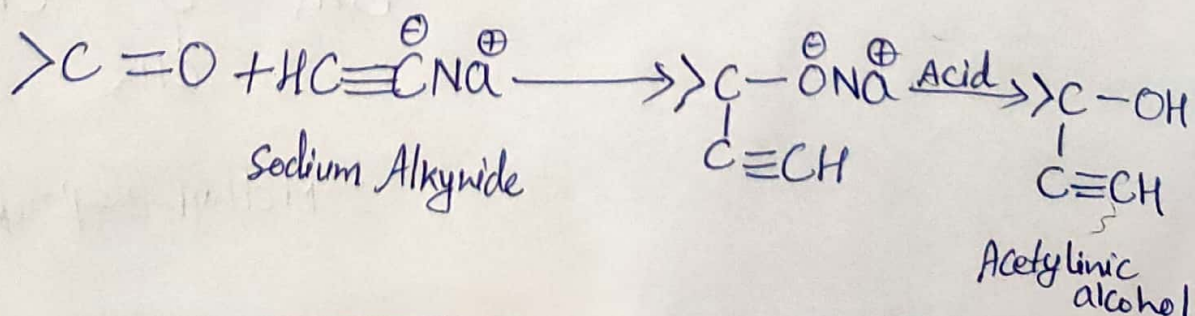 >C=O + HC≡C⊖Na⊕ ⟶ >C–O⊖Na⊕ Acid⟶ >C–OH
C≡CH
C≡CH
Sodium Alkynide
Acetylinic
alcohol